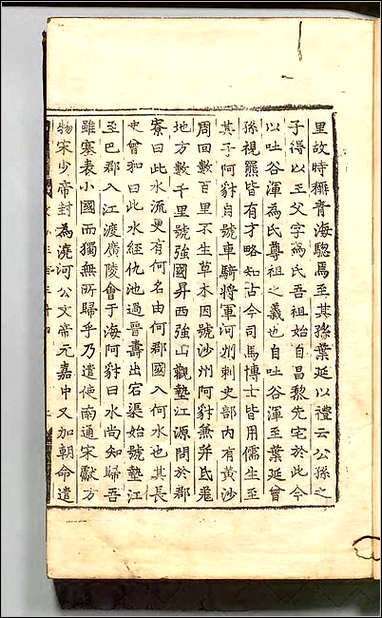 里故時稱青海驄馬至其孫葉延以禮云公孫之
子得以王父字為氏吾祖始自昌黎先宅於此今
以吐谷渾為氏尊祖之義也自吐谷渾至葉延曾
孫視羆皆有才略知古今司馬博士皆用儒生至
其子阿豺自號車騎將軍河州刺史部內有黃沙
周回數百里不生草木因號沙州阿豺兼并氐羌
地方數千里號強國昇西強山觀墊江源問於郡
寮曰此水流更有何名由何郡國入何水也其長
史曾和曰此水經仇池過晉壽出宕渠始號墊江
至巴郡入江渡廣陵會于海阿豺曰水尚知歸吾
雖塞表小國而獨無所歸乎乃遣使南通宋獻方
物宋少帝封為澆河公文帝元嘉中又加朝命遣